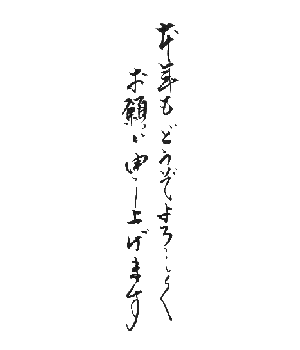 本年もどうぞよろしく
お願い申し上げます